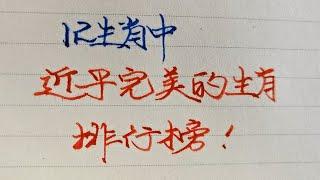 12生肖中
近乎完美的生肖
排行榜!